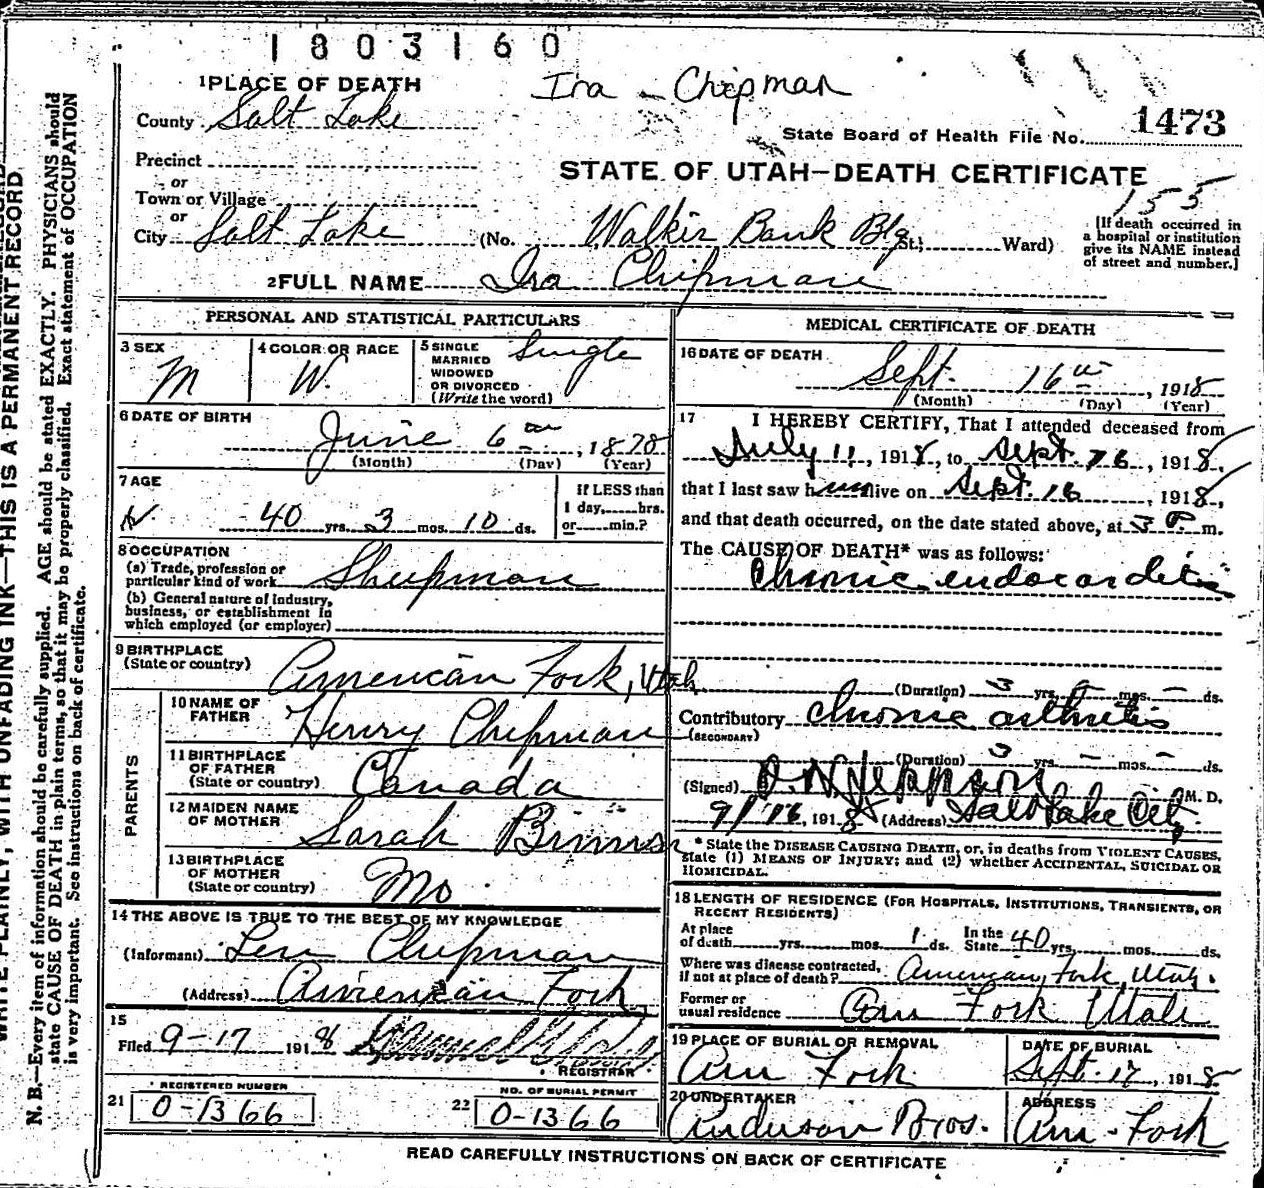 1803160
Ira Chipman
1 PLACE OF DEATH
County Salt Lake
State Board of Health File No. 1473
Precinct
or
Town or Village
or
City Salt Lake
STATE OF UTAH—DEATH CERTIFICATE
155
(No. Walkir Bank Blg St.; Ward)
[If death occurred in
a hospital or institution
give its NAME instead
of street and number.]
2 FULL NAME Ira Chipman
PERSONAL AND STATISTICAL PARTICULARS
3 SEX M
4 COLOR OR RACE W.
5 SINGLE
MARRIED
WIDOWED
OR DIVORCED
(Write the word) Single
6 DATE OF BIRTH
June 6, 1878
(Month) (Day) (Year)
7 AGE
40 yrs. 3 mos. 10 ds.
If LESS than
1 day, hrs.
or min.?
8 OCCUPATION
(a) Trade, profession or
particular kind of work Sheepman
(b) General nature of industry,
business, or establishment in
which employed (or employer)
9 BIRTHPLACE
(State or country) American Fork, Utah
PARENTS
10 NAME OF
FATHER Henry Chipman
11 BIRTHPLACE
OF FATHER
(State or country) Canada
12 MAIDEN NAME
OF MOTHER Sarah
13 BIRTHPLACE
OF MOTHER
(State or country) Mo.
14 THE ABOVE IS TRUE TO THE BEST OF MY KNOWLEDGE
(Informant) Chipman
(Address) American Fork
15
Filed 9-17 1918
REGISTRAR
REGISTERED NUMBER
21 0-1366
NO. OF BURIAL PERMIT
22 0-1366
MEDICAL CERTIFICATE OF DEATH
16 DATE OF DEATH
Sept. 16th, 1918
(Month) (Day) (Year)
17 I HEREBY CERTIFY, That I attended deceased from
July 11, 1918, to Sept. 16, 1918,
that I last saw him alive on Sept. 16, 1918,
and that death occurred, on the date stated above, at 3 P. m.
The CAUSE OF DEATH* was as follows:
Chronic endocarditis
(Duration) 3 yrs. – mos. – ds.
Contributory chronic arthritis
(SECONDARY)
(Duration) 3 yrs. – mos. – ds.
(Signed) M. D.
9/16, 1918 (Address) Salt Lake City
* State the DISEASE CAUSING DEATH, or, in deaths from VIOLENT CAUSES,
state (1) MEANS OF INJURY; and (2) whether ACCIDENTAL, SUICIDAL OR
HOMICIDAL.
18 LENGTH OF RESIDENCE (FOR HOSPITALS, INSTITUTIONS, TRANSIENTS, OR
RECENT RESIDENTS)
At place
of death yrs. mos. 1 ds.
In the
State 40 yrs. mos. ds.
Where was disease contracted,
if not at place of death? American Fork, Utah.
Former or
usual residence Am Fork Utah
19 PLACE OF BURIAL OR REMOVAL
Am Fork.
DATE OF BURIAL
Sept. 17, 1918
20 UNDERTAKER
Anderson Bros.
ADDRESS
Am. Fork
READ CAREFULLY INSTRUCTIONS ON BACK OF CERTIFICATE
WRITE PLAINLY, WITH UNFADING INK—THIS IS A PERMANENT RECORD
N. B.—Every item of information should be carefully supplied. AGE should be stated EXACTLY. PHYSICIANS should
state CAUSE OF DEATH in plain terms, so that it may be properly classified. Exact statement of OCCUPATION
is very important. See instructions on back of certificate.